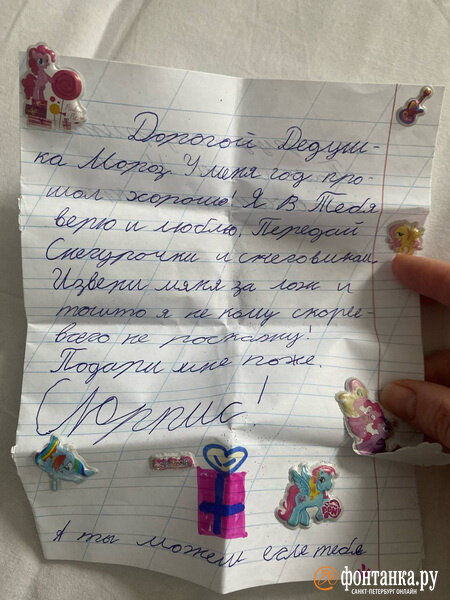 Дорогой Дедуш-
ка Мороз У меня год про-
шол хорошо! Я в Тебя
верю и люблю. Передай
Снегурочки и снеговикам.
Извени мяня за лож и
тошто я не кому скорее
всего не роскажу!
Подари мне поже.
Сюрпис!
А ты можеш если тебя
фонтанка.ру
САНКТ-ПЕТЕРБУРГ ОНЛАЙН